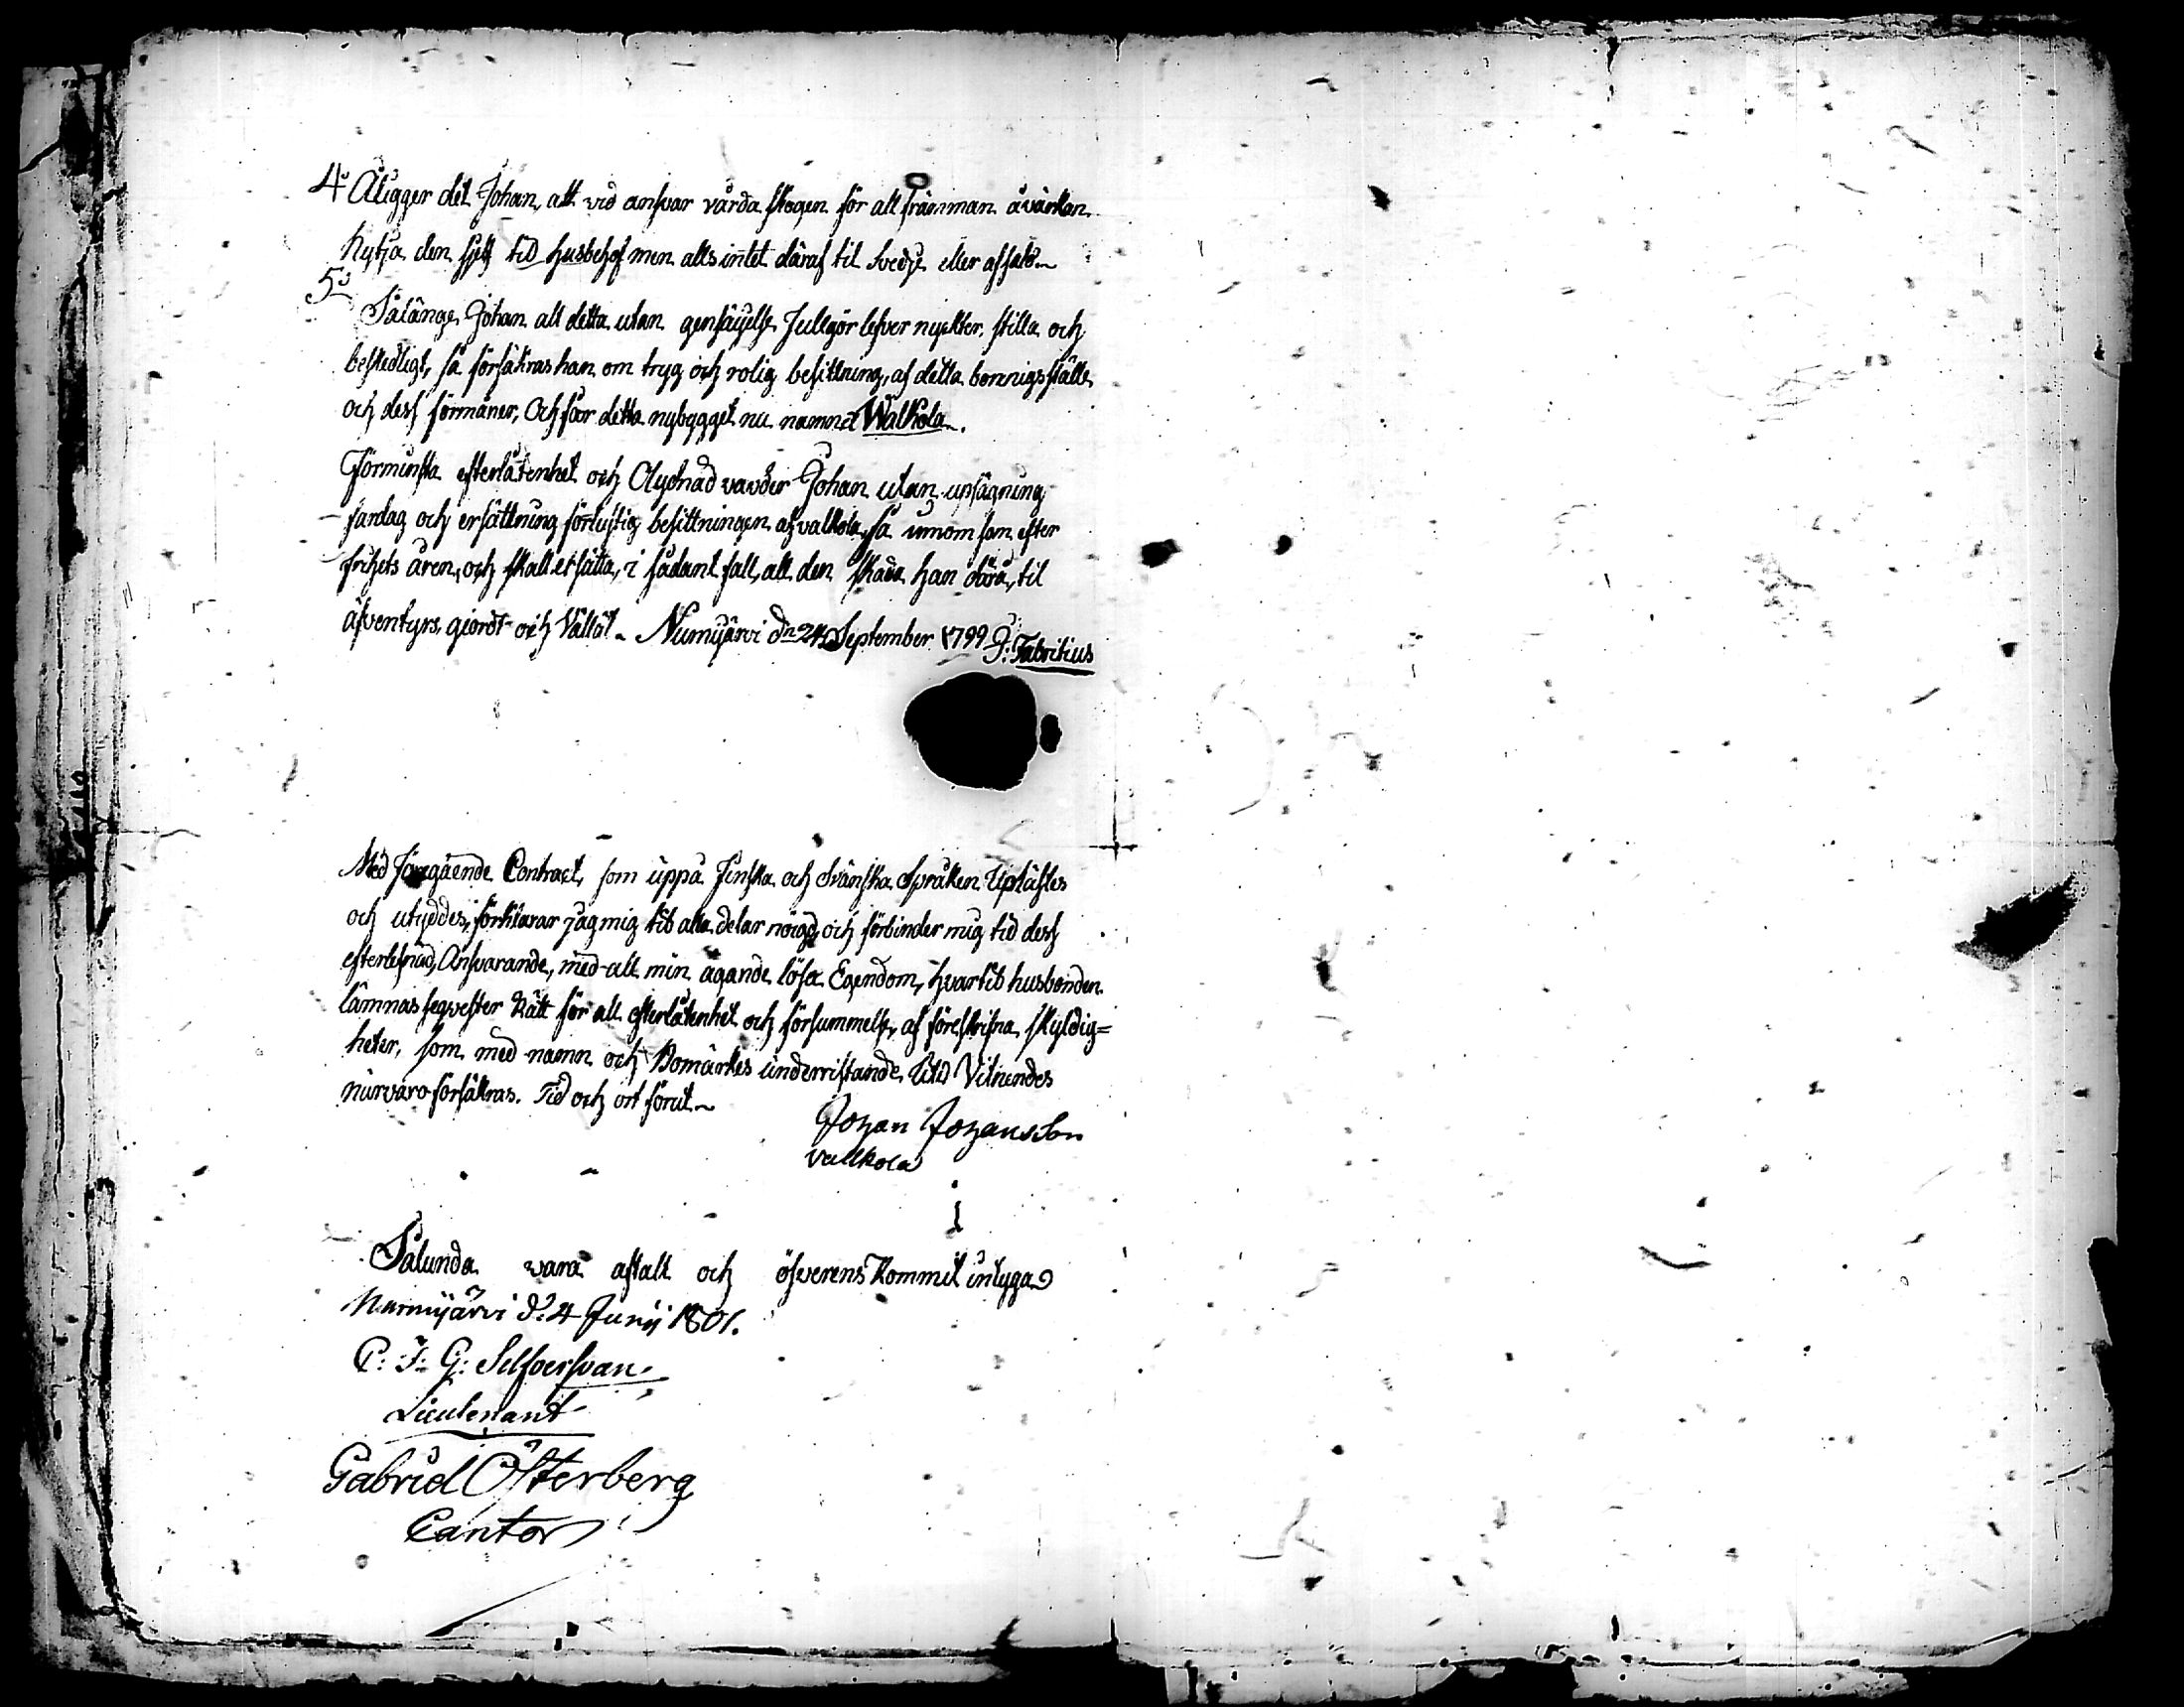 4o Åligger det Johan, att vid ansvar vårda skogen för all främman åvärkan
nytja den sjelf til husbehof men alls intet däraf til Svedje eller afsalu
5o
Sålänge Johan alt detta utan gensäyelse fullgör lefver nyckter, stilla och
beskedligt, så försäkras han om tryg och rolig besittning, af detta bonnigsställe
och dess förmåner, Och får detta nybygget nu namnet Walkola.
Förminsta efterlåtenhet och Olydnad varder Johan utan upsägning
fardag och ersättning förlustig besittningen af valkola, så innom som efter
frihets åren, och skall ersätta, i sådant fall, all den skada han därå, til
äfventyrs, giordt och Vållat. Numijärvi dn 24 September 1799 J: Fabritius
Med föregående Contract, som uppå Finska och Svänska Språken Uplästes
och utyddes, förklarar jag mig til alla delar nögd, och förbinder mig til dess
efterlefnad, Ansvarande, med all min ägande lösa Egendom, hvartil husbonden
lämnas seqvester Rätt för all efterlåtenhet och försummelse, af föreskrifna skyldig=
heter, som med namn och Bomärkes underristande, Uti Vitnendes
närvaro försäkras. Tid och ort förut
Johan Johansson
Vallkola
Sålunda vara aftalt och öfverens Kommit intygar
Nurmijärvi d: 4 Junij 1801.
C: F: G: Silfversvan
Lieutenant
Gabriel Österberg
Cantor